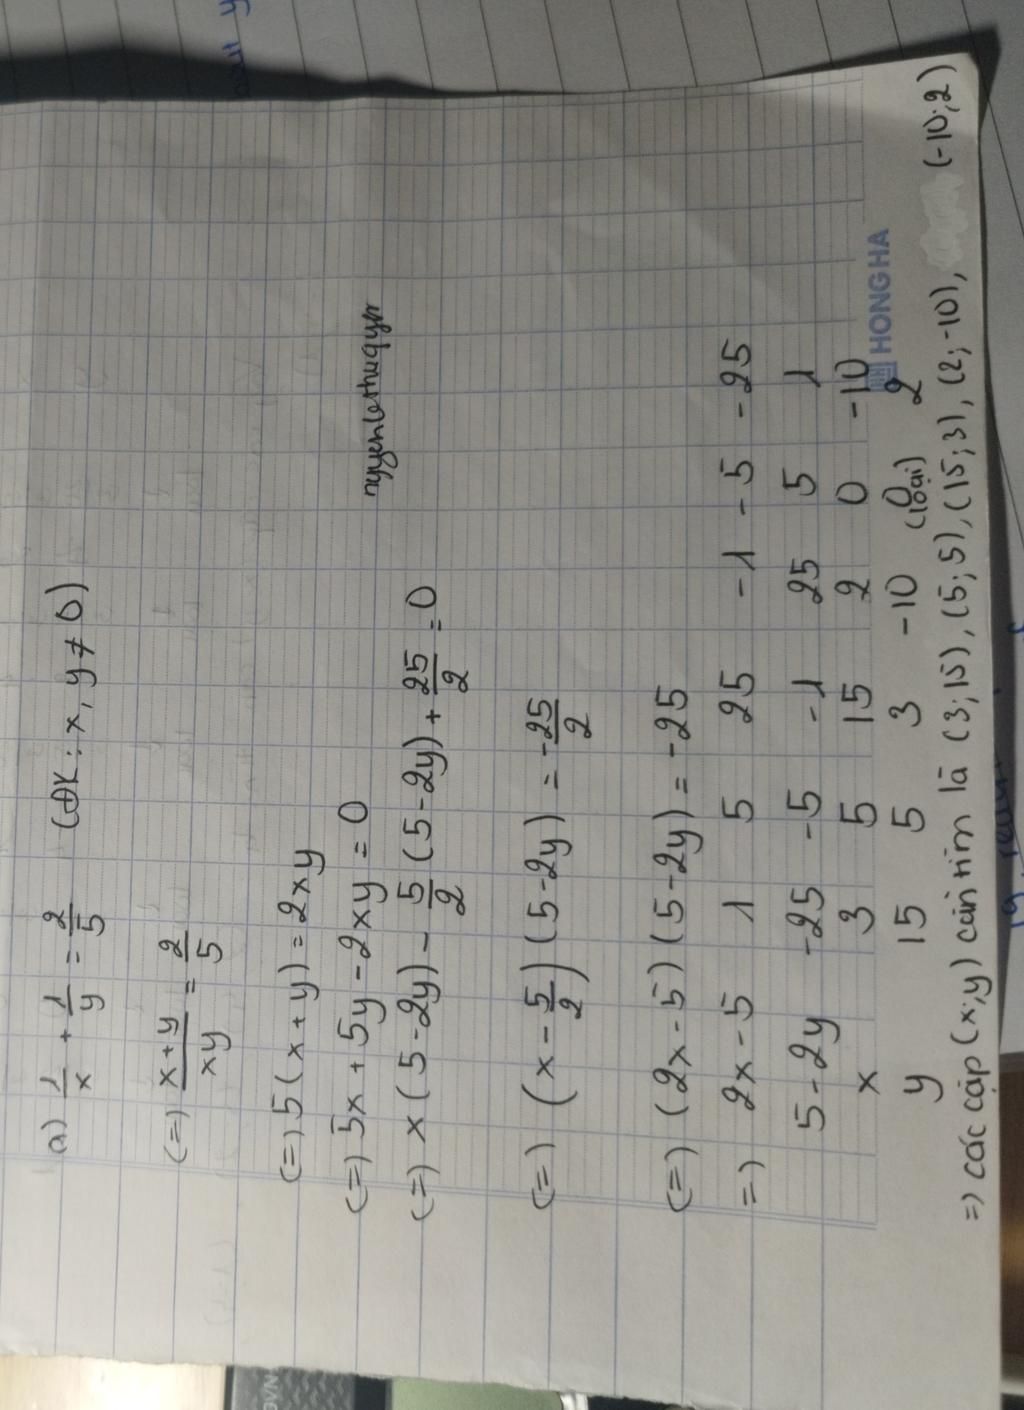 a) 1/x + 1/y = 2/5 (ĐK: x, y ≠ 0)
(=) x+y/xy = 2/5
(=) 5(x+y) = 2xy
(=) 5x + 5y - 2xy = 0
nguyenlethuquyn
(=) x(5-2y) - 5/2 (5-2y) + 25/2 = 0
(=) (x - 5/2)(5-2y) = -25/2
(=) (2x-5)(5-2y) = -25
=) 2x-5 1 5 25 -1 -5 -25
5-2y -25 -5 -1 25 5 1
x 3 5 15 2 0 -10
y 15 5 3 -10 0 (loại) 2
HONG HA
=) các cặp (x;y) cần tìm là (3;15), (5;5), (15;3), (2;-10), (-10;2)